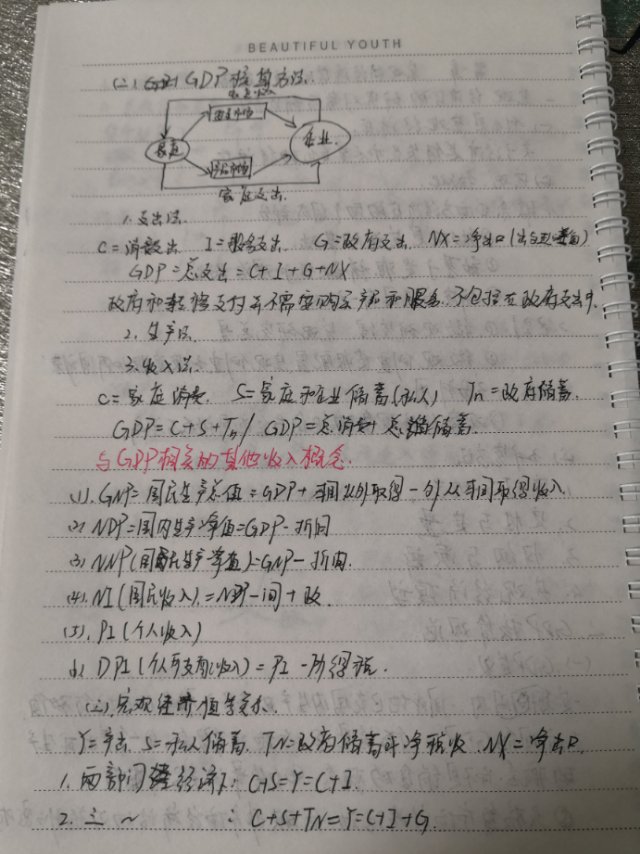 BEAUTIFUL YOUTH
(二) GDP核算方法
家庭收入
要素市场
家庭
企业
产品市场
家庭支出
1.支出法
C=消费支出 I=投资支出 G=政府支出 NX=净出口
GDP=总支出=C+I+G+NX
政府和转移支付并不需要购买产品和服务,不包括在政府支出中.
2.生产法
3.收入法
C=家庭消费 S=家庭和企业储蓄(私人) Tn=政府储蓄.
GDP=C+S+Tn/ GDP=总消费+总储蓄
与GDP相关的其他收入概念.
(1). GNP=国民生产总值=GDP+本国从外取得-外从本国取得收入
(2) NDP=国内生产净值=GDP-折旧
(3) NNP(国民生产净值)=GNP-折旧.
(4). NI(国民收入)=NNP-间+政
(5). PI(个人收入)
(6). DPI(个人可支配收入)=PI-所得税.
(三).宏观经济恒等式.
Y=产出. S=私人储蓄. TN=政府储蓄或净税收. NX=净出口.
1.两部门经济: C+S=Y=C+I.
2.三 ~ : C+S+TN=Y=C+I+G.